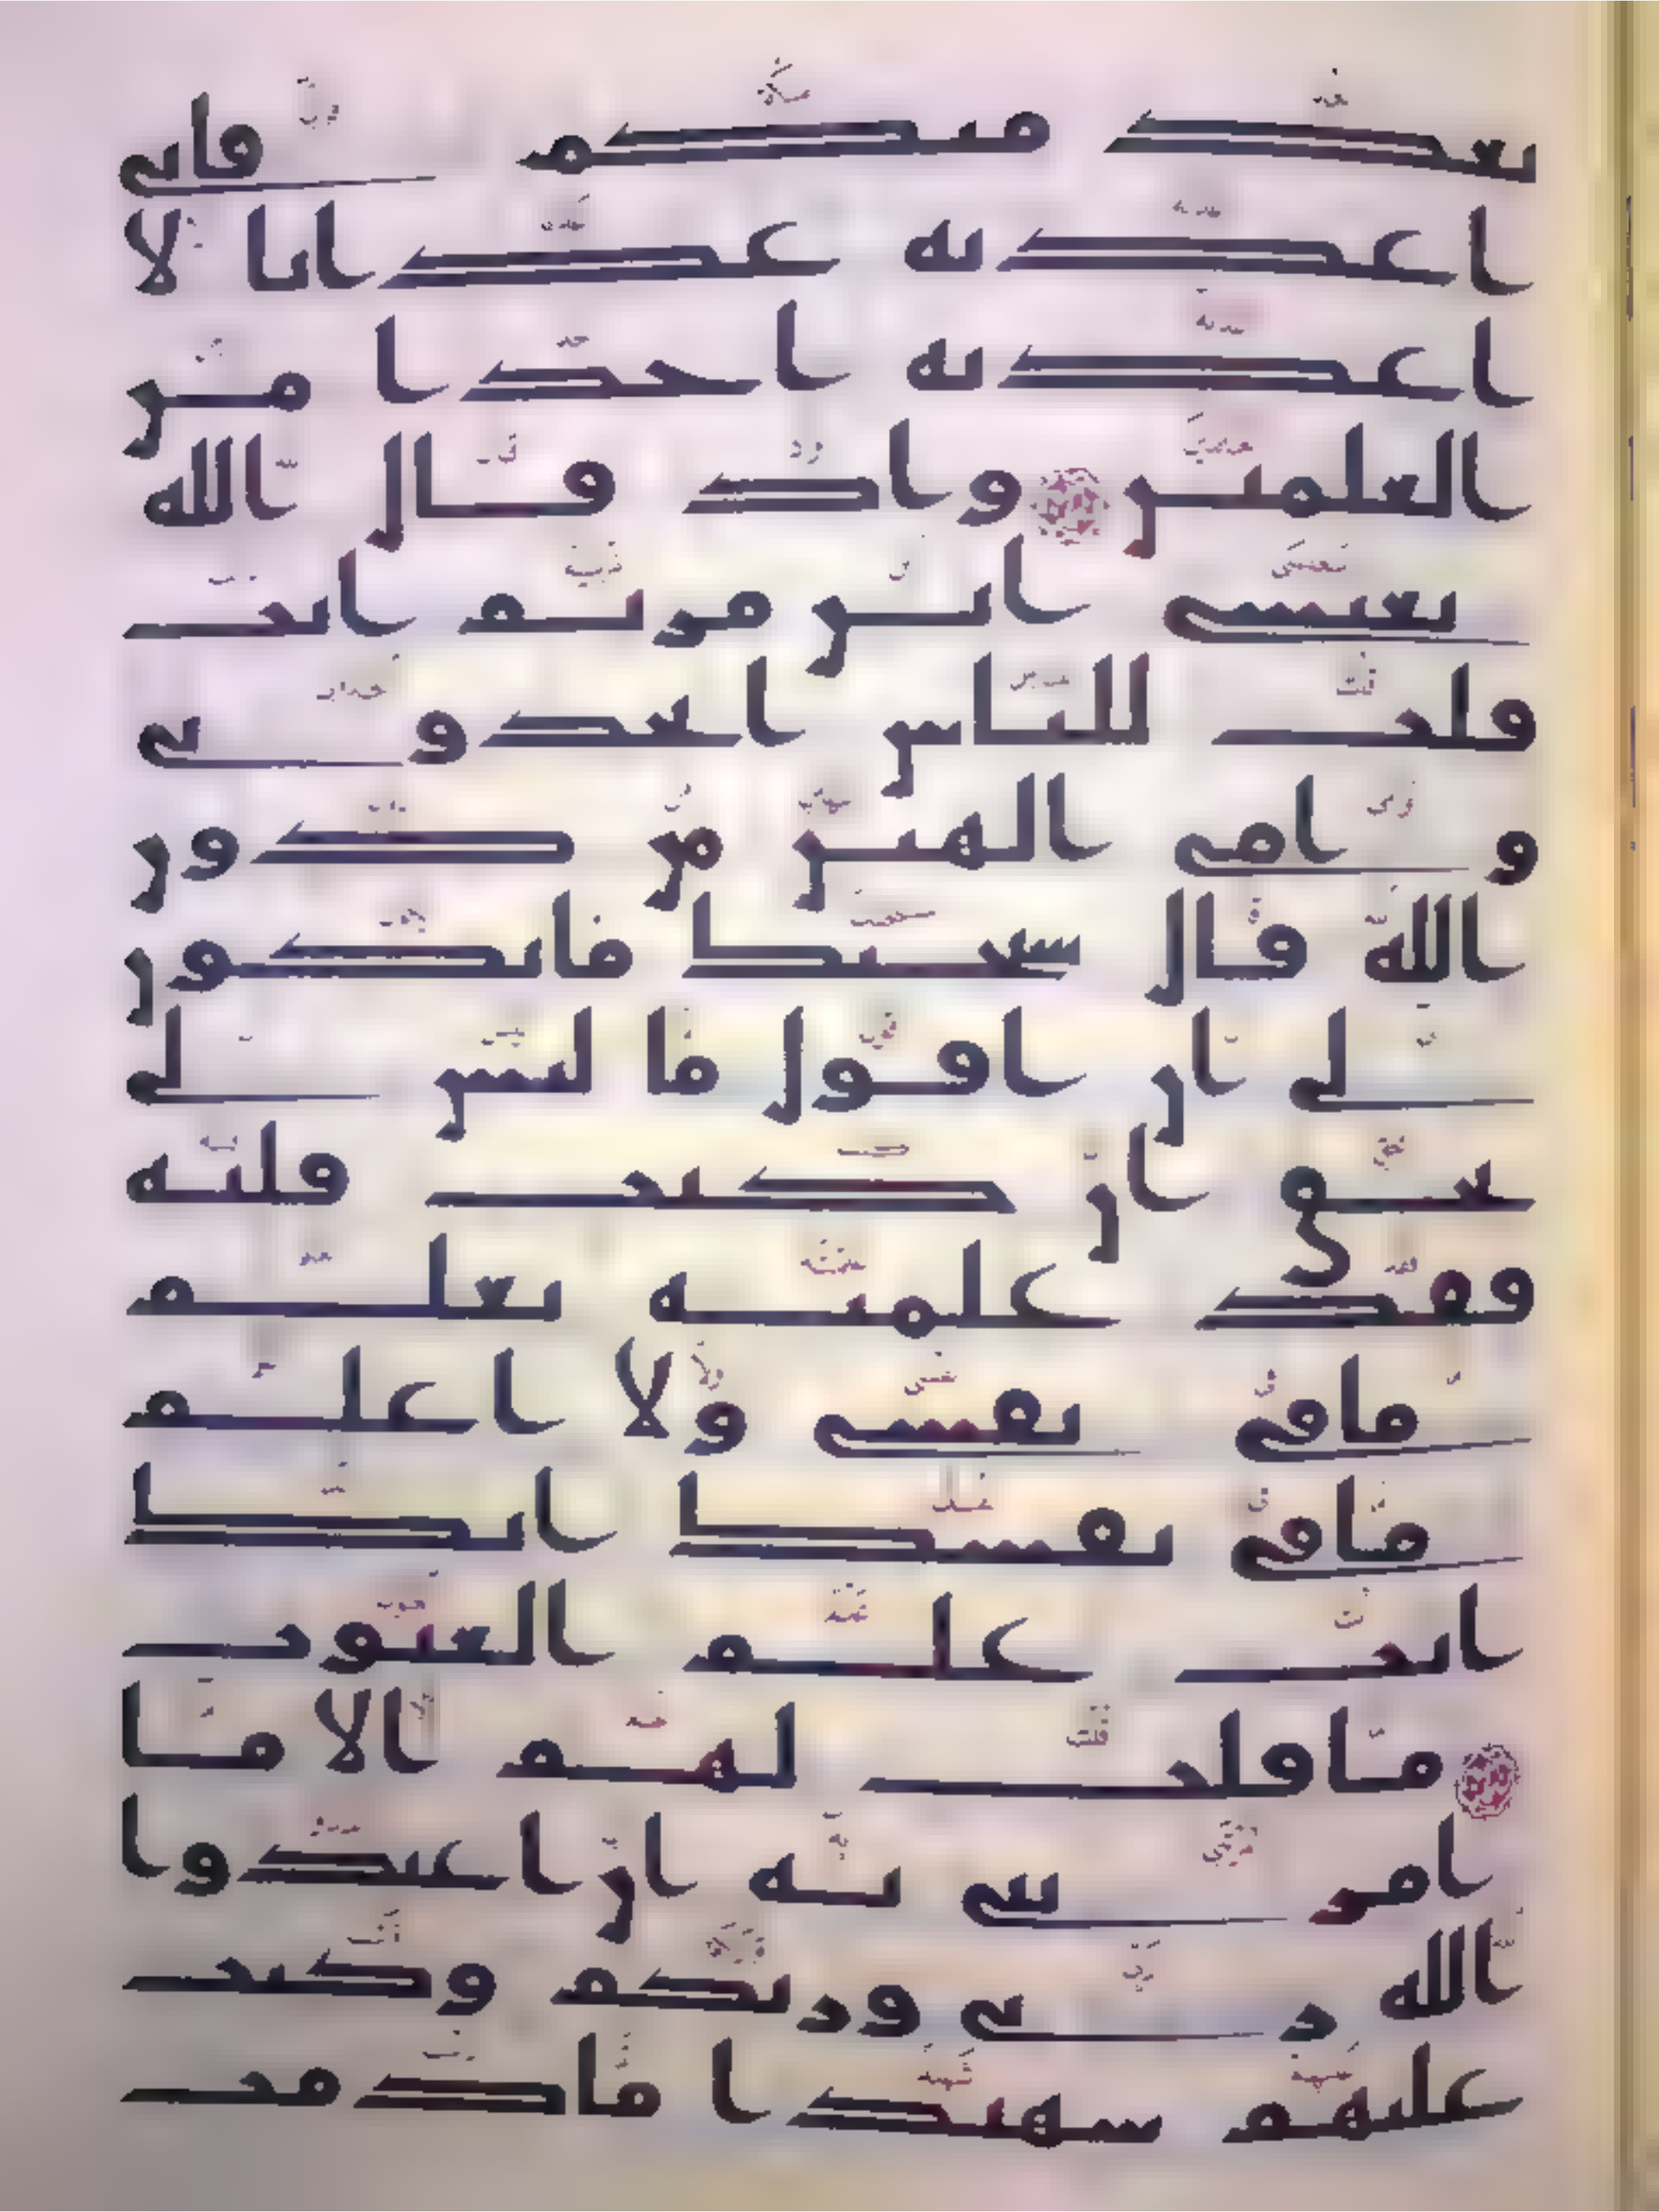 بعد منكم فانى
اعذبه عذابا لا
اعذبه احدا من
العلمين واذ قال الله
يعيسى ابن مريم انت
قلت للناس اتخذونى
و امى الهين من دون
الله قال سبحنك ما يكون
لى ان اقول ما ليس لى
بحق ان كنت قلته
فقد علمته تعلم
ما فى نفسى ولا اعلم
ما فى نفسك انك
انت علم الغيوب
ما قلت لهم الا ما
امرتنى به ان اعبدوا
الله ربى وربكم وكنت
عليهم شهيدا ما دمت